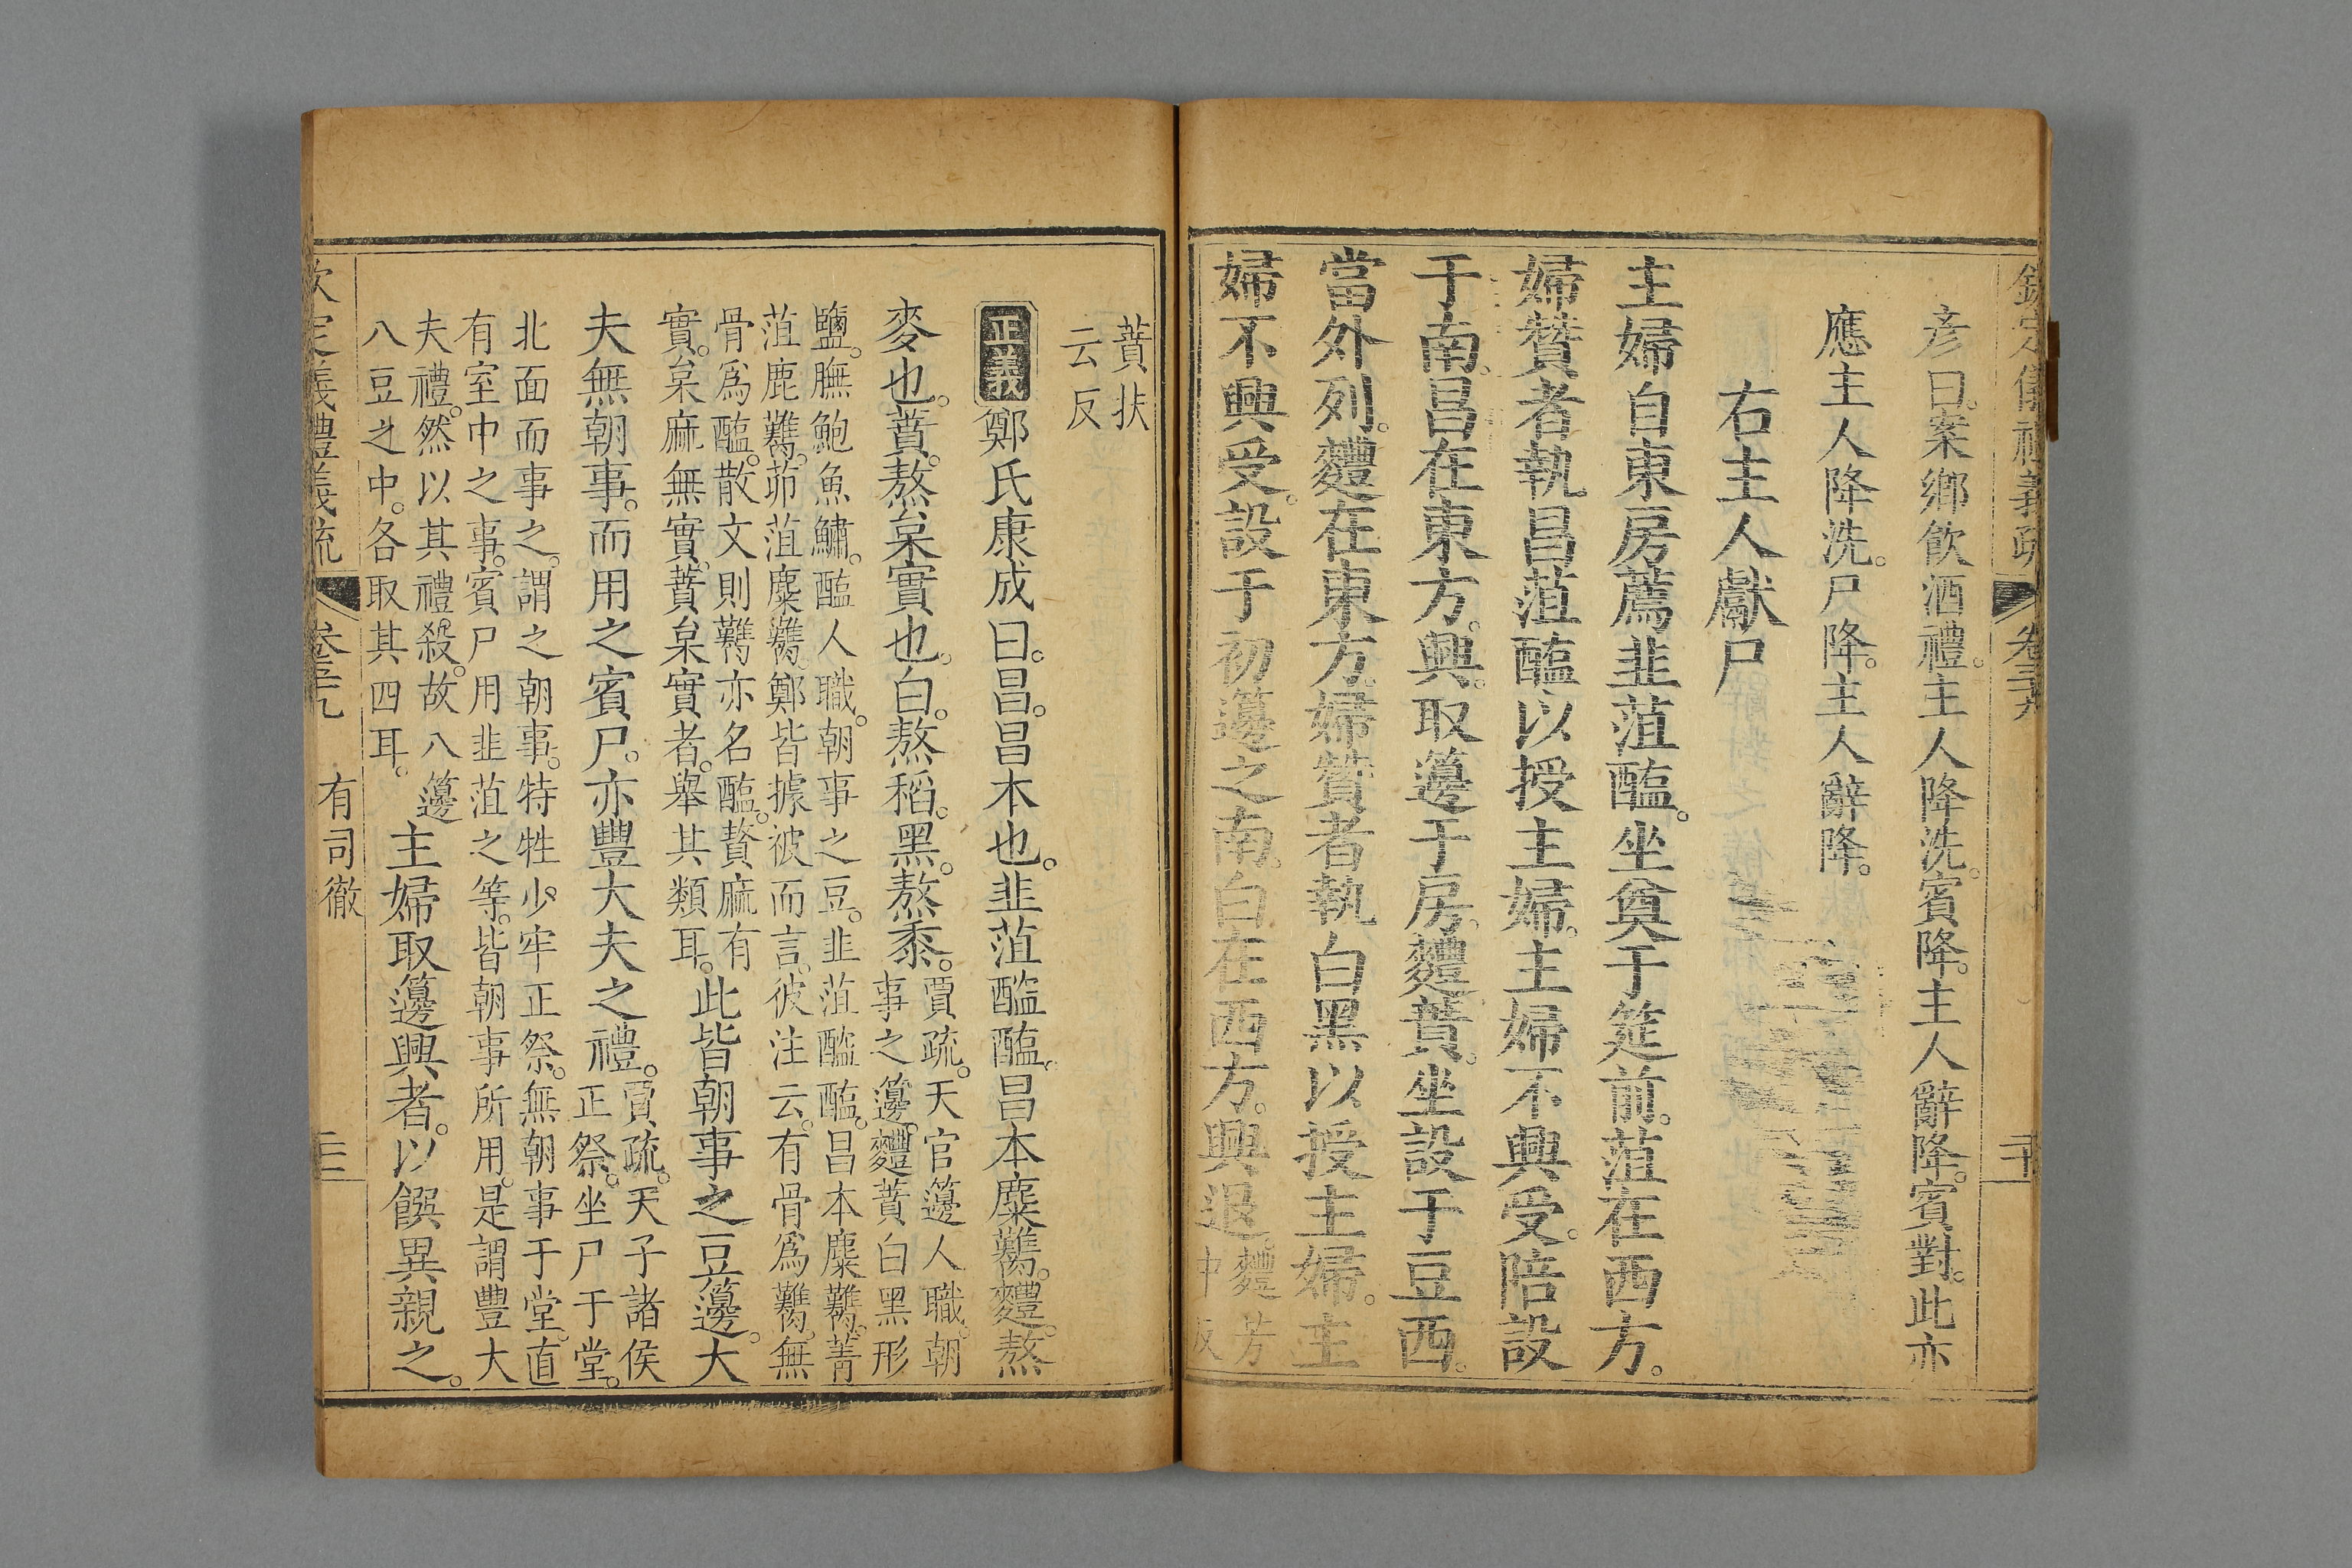 欽定儀禮義疏 卷三十九 二十
彥曰。案鄉飲酒禮。主人降洗。賓降。主人辭降。賓對。此亦
應主人降洗。尸降。主人辭降。
右主人獻尸
主婦自東房薦韭菹醢。坐奠于筵前。菹在西方。
婦贊者執昌菹醢以授主婦。主婦不興受。陪設
于南。昌在東方。興。取籩于房。麷蕡。坐設于豆西。
當外列。麷在東方。婦贊者執白黑以授主婦。主
婦不興受。設于初籩之南。白在西方。興退。麷芳
中反
蕡扶
云反
正義 鄭氏康成曰。昌。昌本也。韭菹醓醢。昌本麋臡。麷。熬
麥也。蕡。熬枲實也。白。熬稻。黑。熬黍。賈疏。天官籩人職。朝
事之籩。麷蕡白黑形
鹽。膴鮑魚鱐。醢人職。朝事之豆。韭菹醓醢。昌本麋臡。菁
菹鹿臡。茆菹麋臡。鄭皆據彼而言。彼注云。有骨爲臡。無
骨爲醢。散文則臡亦名醢。蕡麻有
實。枲麻無實。蕡枲實者。舉其類耳。此皆朝事之豆籩。大
夫無朝事。而用之賓尸。亦豐大夫之禮。賈疏。天子諸侯
正祭。坐尸于堂。
北面而事之。謂之朝事。特牲少牢正祭。無朝事于堂。直
有室中之事。賓尸用韭菹之等。皆朝事所用。是謂豐大
夫禮。然以其禮。殺。故八籩
八豆之中。各取其四耳。主婦取籩興者。以饌異親之。
欽定儀禮義疏 卷三十九 有司徹 二十一